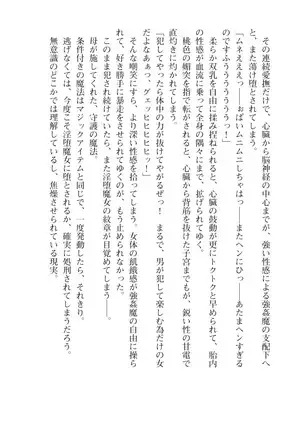 その連続愛撫だけで、心臓から脳神経の中心までが、強い性感による強姦魔の支配下へ
と、また蕩け堕とされてしまう。
「ムネえええっ――おぱいムニムニしちゃはっ――またヘンにひっ――あたまヘンすぎる
のですふううううううっ！」
柔らか双乳を自由に揉み捏ねられると、心臓の鼓動が更にトクトクと早められて、胎内
の性感が血流に乗って全身の隅々にまで、拡げられてゆく。
桃色の媚突を指で転がされると、心臓から背筋を抜けた子宮までもが、鋭い性の甘電で
直灼きに灼かれてしまう。
「犯してやったら体中の力が抜けてやがるぜっ！　まるで、男が犯して愉しむ為だけの女
だよなあぁっ、グェッヒヒヒヒヒッ！」
その嘲笑にすら、より深い性感を拾ってしまう。女体の飢餓感が強姦魔の自由に操ら
れて、好き勝手に暴走をさせられてゆくのが、もう止められなかった。
このまま犯され続けていたら、また淫堕魔女の紋章が目覚めてしまう――。
母が施してくれた、守護の魔法。
条件付きの魔法はマジックアイテムと同じで、一度発動したら、それきり。
逃げなくては、今度こそ淫堕魔女に堕とされるか、確実に処刑されてしまうだろう。
無意識のどこかでは理解しているし、焦燥させられている現実。